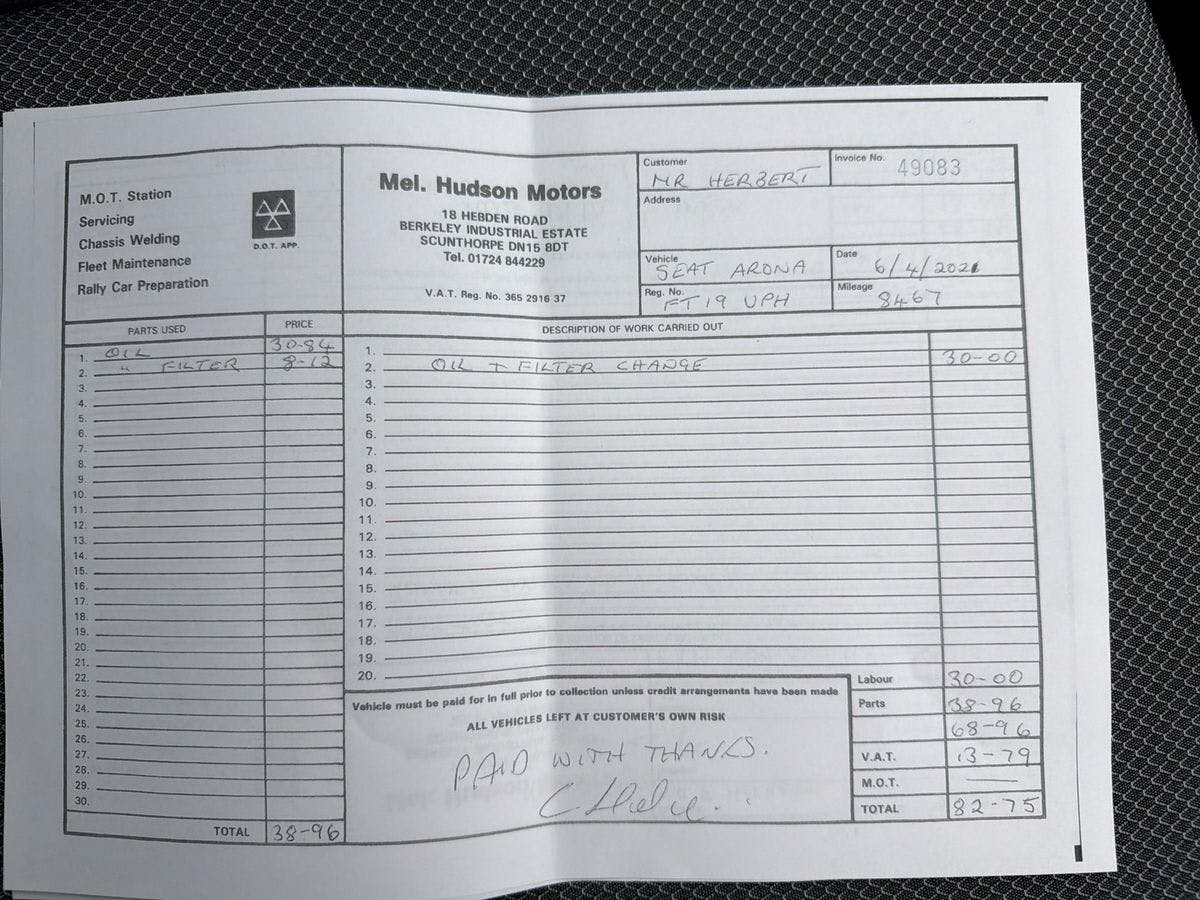 M.O.T. Station
Servicing
Chassis Welding
Fleet Maintenance
Rally Car Preparation
D.O.T. APP.
Mel. Hudson Motors
18 HEBDEN ROAD
BERKELEY INDUSTRIAL ESTATE
SCUNTHORPE DN15 8DT
Tel. 01724 844229
V.A.T. Reg. No. 365 2916 37
Customer
MR HERBERT
Invoice No. 49083
Address
Vehicle
SEAT ARONA
Date
6/4/2021
Reg. No.
FT19 UPH
Mileage
8467
PARTS USED PRICE
1. OIL 30-84
2. " FILTER 8-12
3.
4.
5.
6.
7.
8.
9.
10.
11.
12.
13.
14.
15.
16.
17.
18.
19.
20.
21.
22.
23.
24.
25.
26.
27.
28.
29.
30.
TOTAL 38-96
DESCRIPTION OF WORK CARRIED OUT
1.
2. OIL + FILTER CHANGE 30-00
3.
4.
5.
6.
7.
8.
9.
10.
11.
12.
13.
14.
15.
16.
17.
18.
19.
20.
Vehicle must be paid for in full prior to collection unless credit arrangements have been made
ALL VEHICLES LEFT AT CUSTOMER'S OWN RISK
PAID WITH THANKS.
Labour 30-00
Parts 38-96
68-96
V.A.T. 13-79
M.O.T. —
TOTAL 82-75